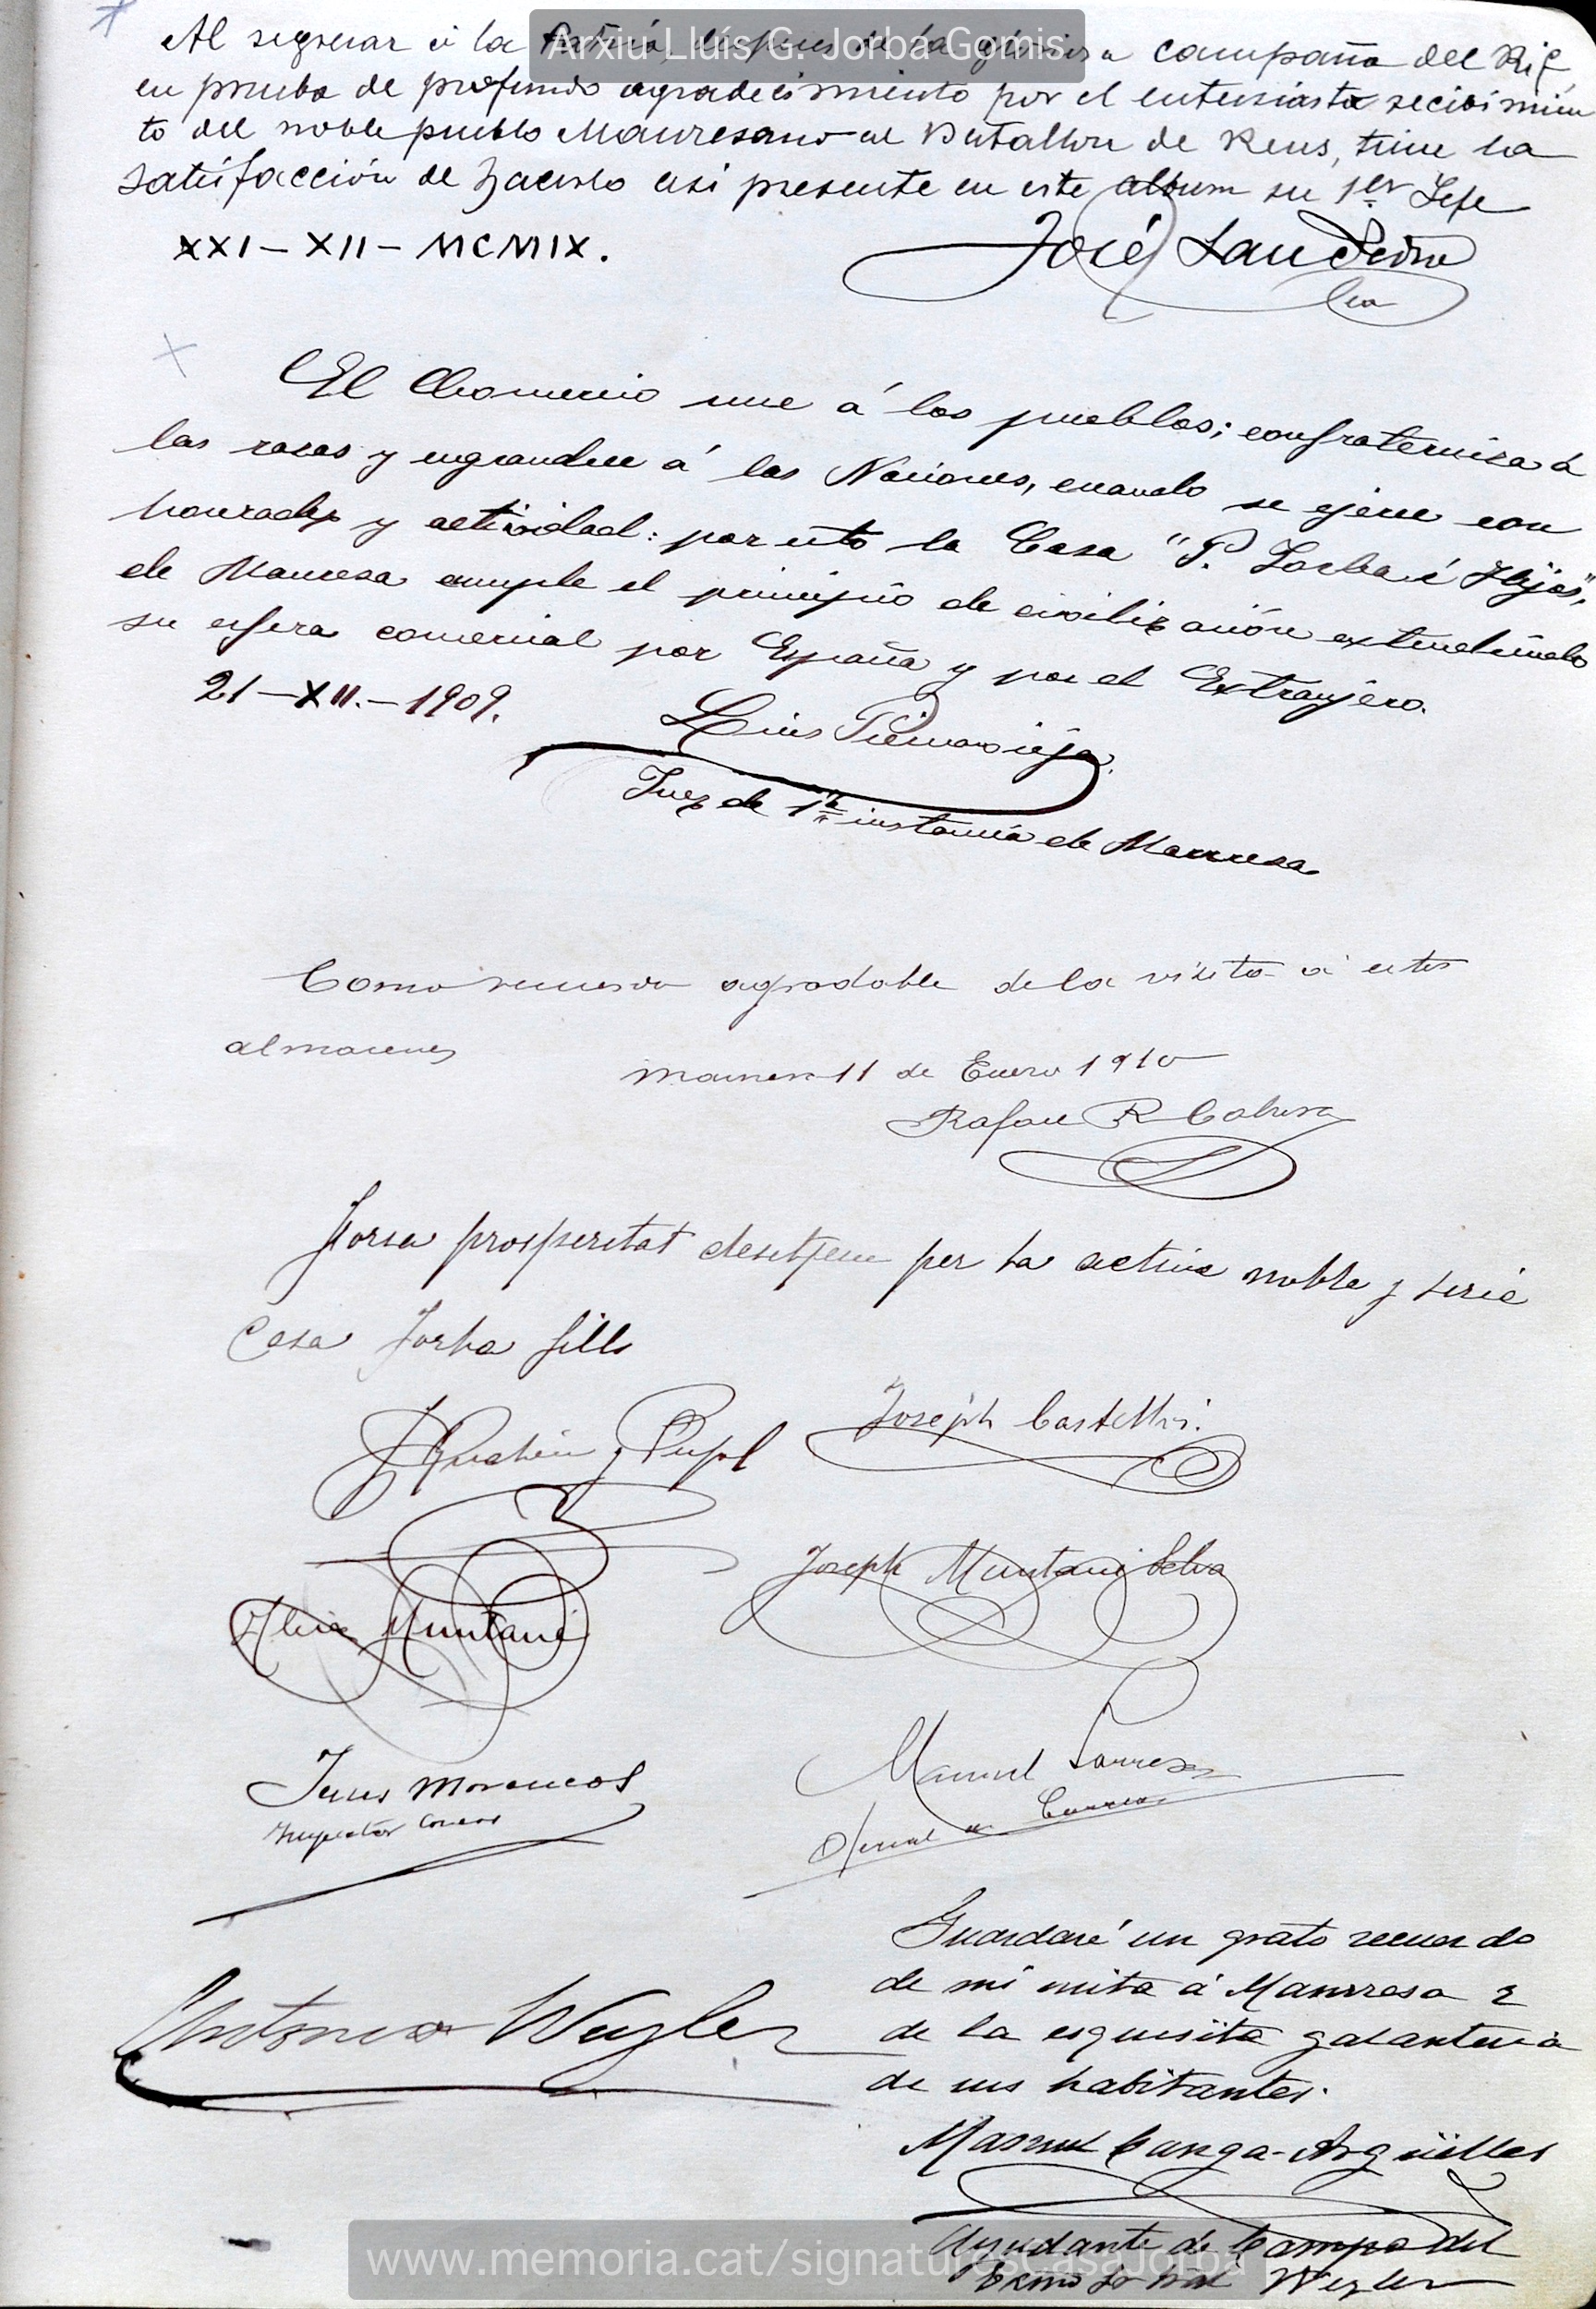 Arxiu Lluís G. Jorba Gomis
Al regresar á la Patria, despues de la gloriosa campaña del Rif,
en prueba de profundo agradecimiento por el entusiasta recibimien
to del noble pueblo Manresano al Batallon de Reus, tiene la
satisfacción de hacerlo asi presente en este album su 1er Jefe
XXI - XII - MCMIX.
José San Pedro
El Comercio une á los pueblos; confraterniza á
las razas y engrandece á las Naciones, cuando se ejerce con
honradez y actividad: por esto la Casa "P. Jorba é Hijos",
de Manresa cumple el principio de civilización extendiendo
su esfera comercial por España y por el Extranjero.
21 - XII. - 1909.
Luis
Juez de 1ª instancia de Manresa
Como recuerdo agradable de la visita á estos
almacenes
Manresa 11 de Enero 1910
Rafael R Cabrera
Forsa prosperitat desitjem per la activa noble y seria
Casa Jorba fills
Joseph Castells
y Pujol
Joseph Muntané Selva
Muntané
Jesus Morencos
Inspector Correos
Manuel Torres
Oficial de Correos
Antonio Weyler
Guardaré un grato recuerdo
de mi visita á Manresa e
de la esquisita galanteria
de sus habitantes.
Manuel Canga-Argüelles
Ayudante de Campo del
Exmo Sr Gral Weyler
www.memoria.cat/signaturescasajorba